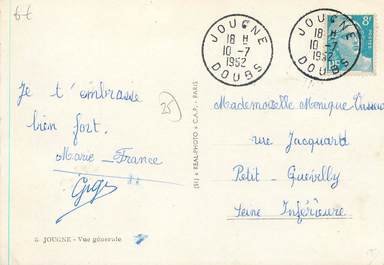 JOUGNE
18 H
10 -7
1952
DOUBS
JOUGNE
18 H
10 -7
1952
DOUBS
8F
POSTES
Je t'embrasse
bien fort.
Marie-France
Gigi
25
(S1) ★ REAL-PHOTO ★ C.A.P. - PARIS
Mademoiselle Monique
rue Jacquard
Petit-Quevilly
Seine Inférieure
JOUGNE - Vue générale